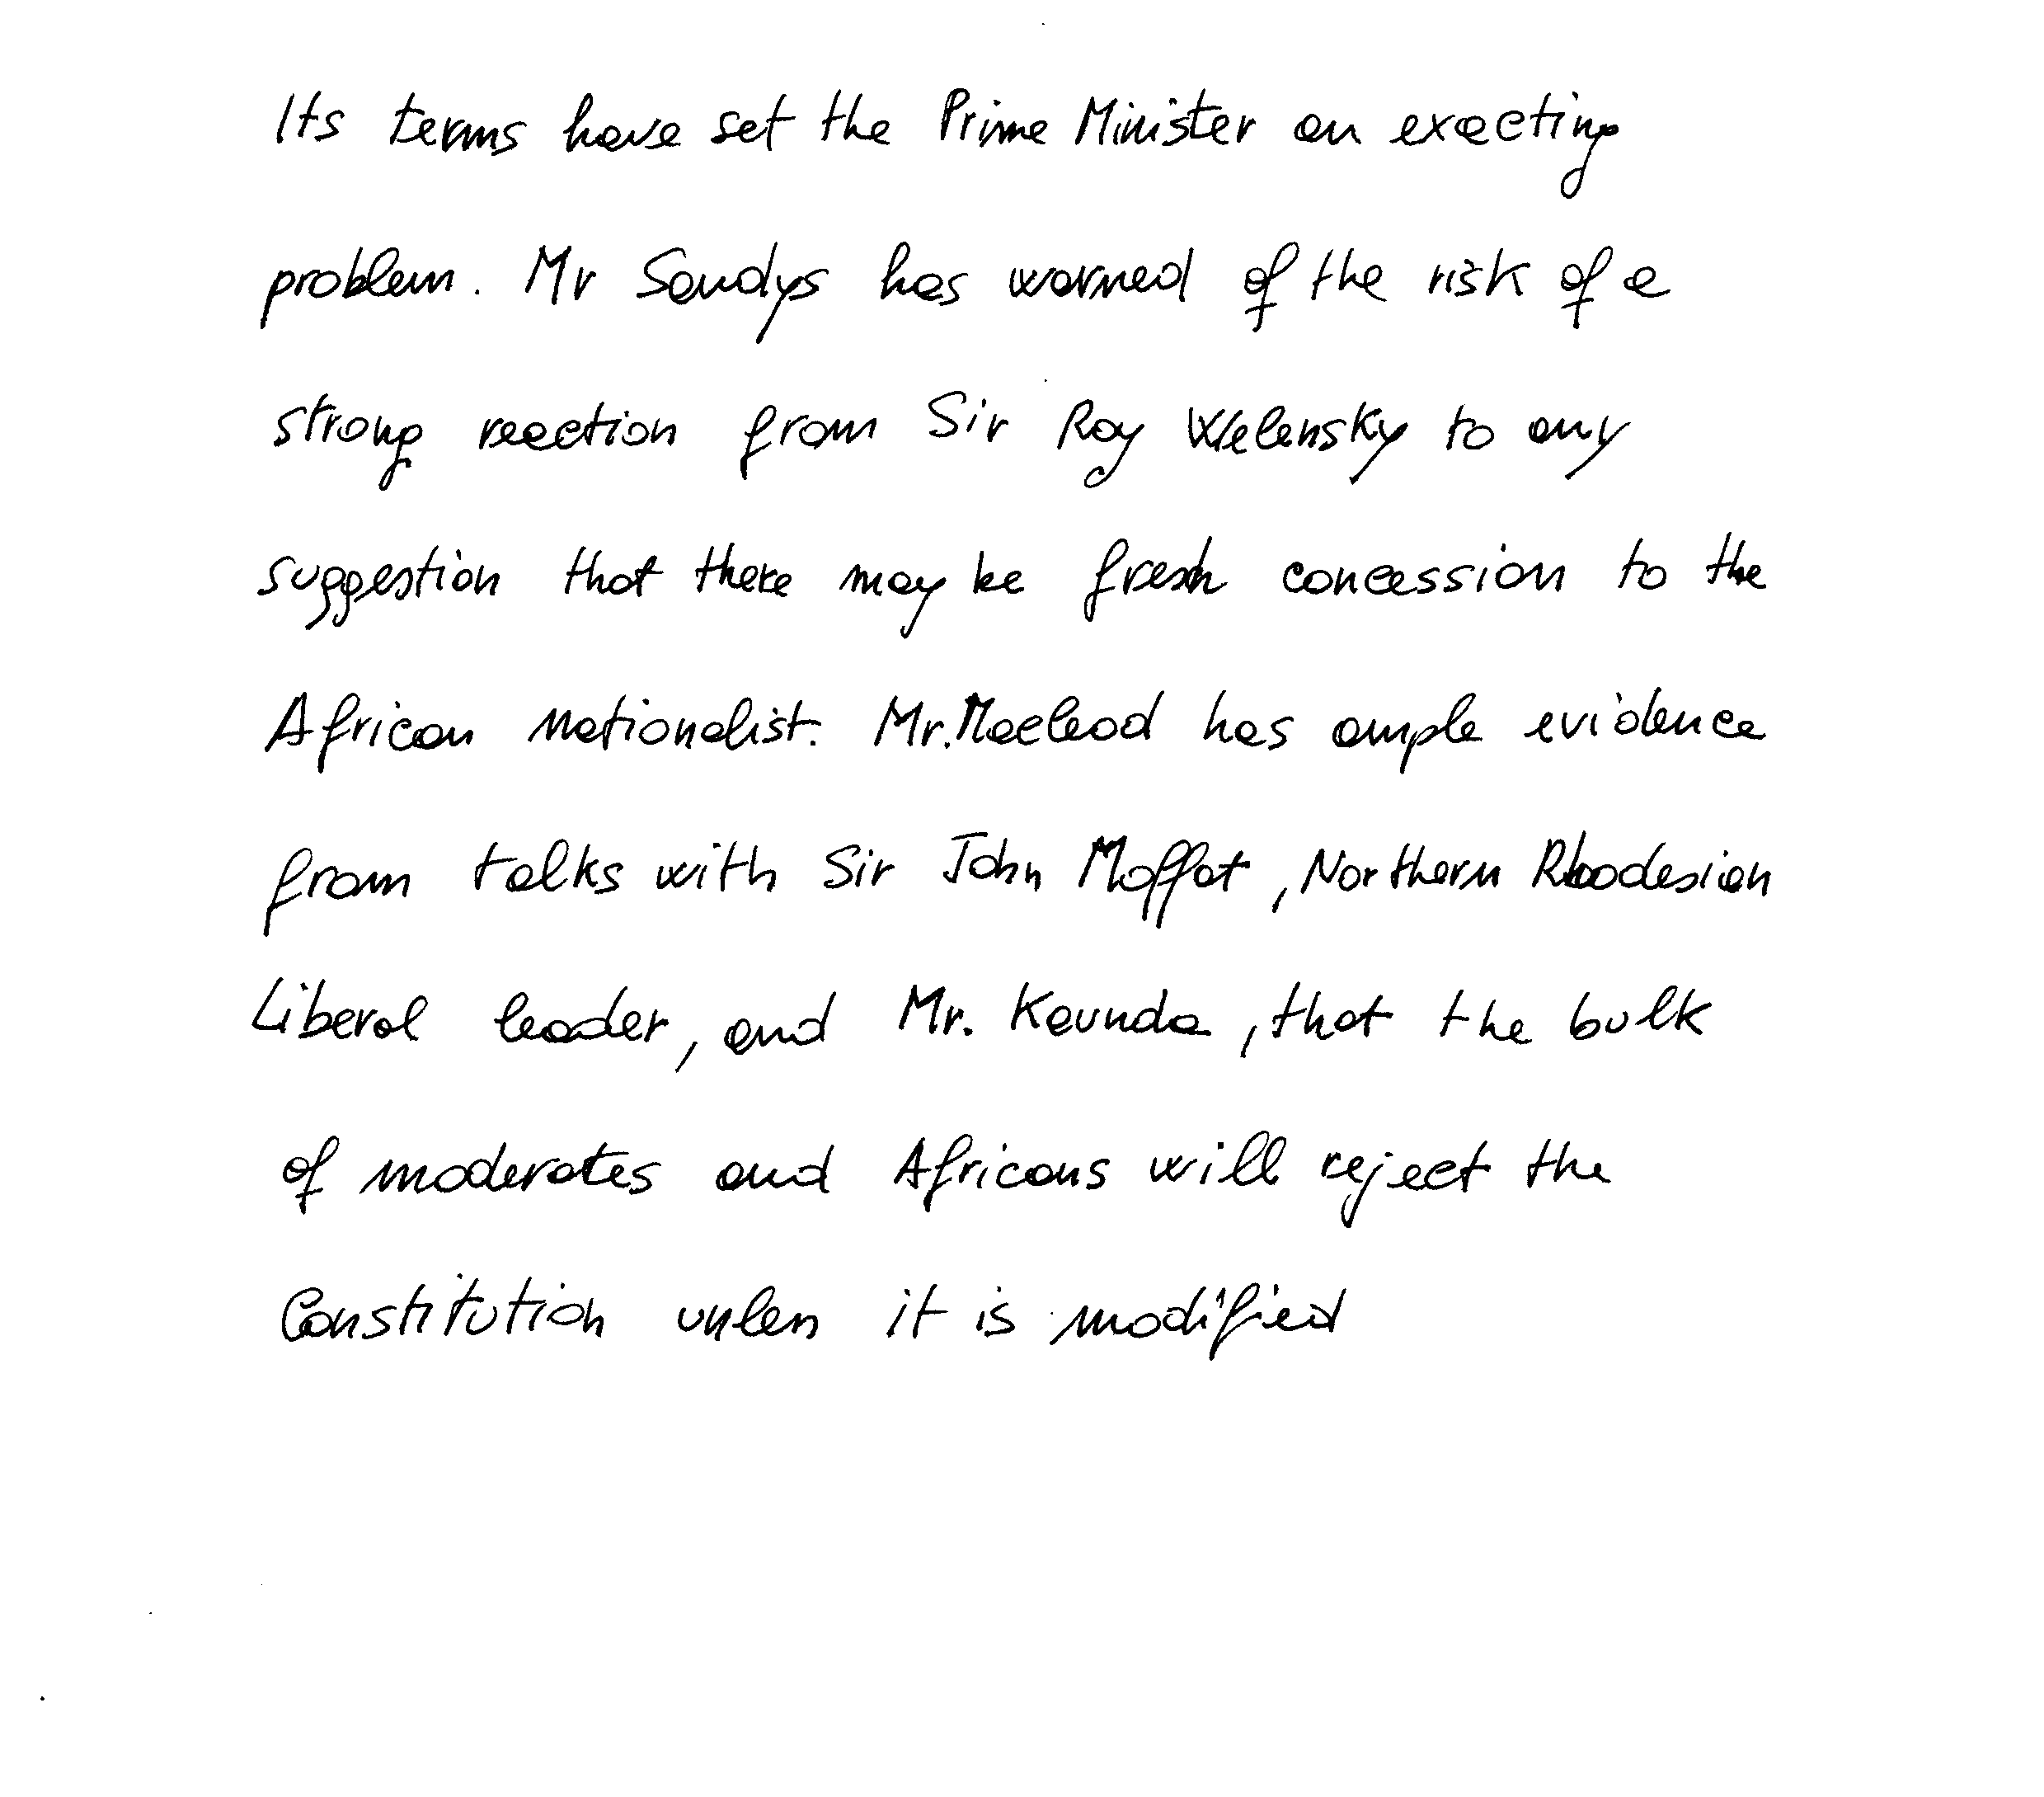 Its terms have set the Prime Minister an exacting
problem. Mr Sandys has warned of the risk of a
strong reaction from Sir Roy Welensky to any
suggestion that there may be fresh concession to the
African Nationalist. Mr. Macleod has ample evidence
from talks with Sir John Moffat, Northern Rhodesian
Liberal leader, and Mr. Kaunda, that the bulk
of moderates and Africans will reject the
Constitution unless it is modified